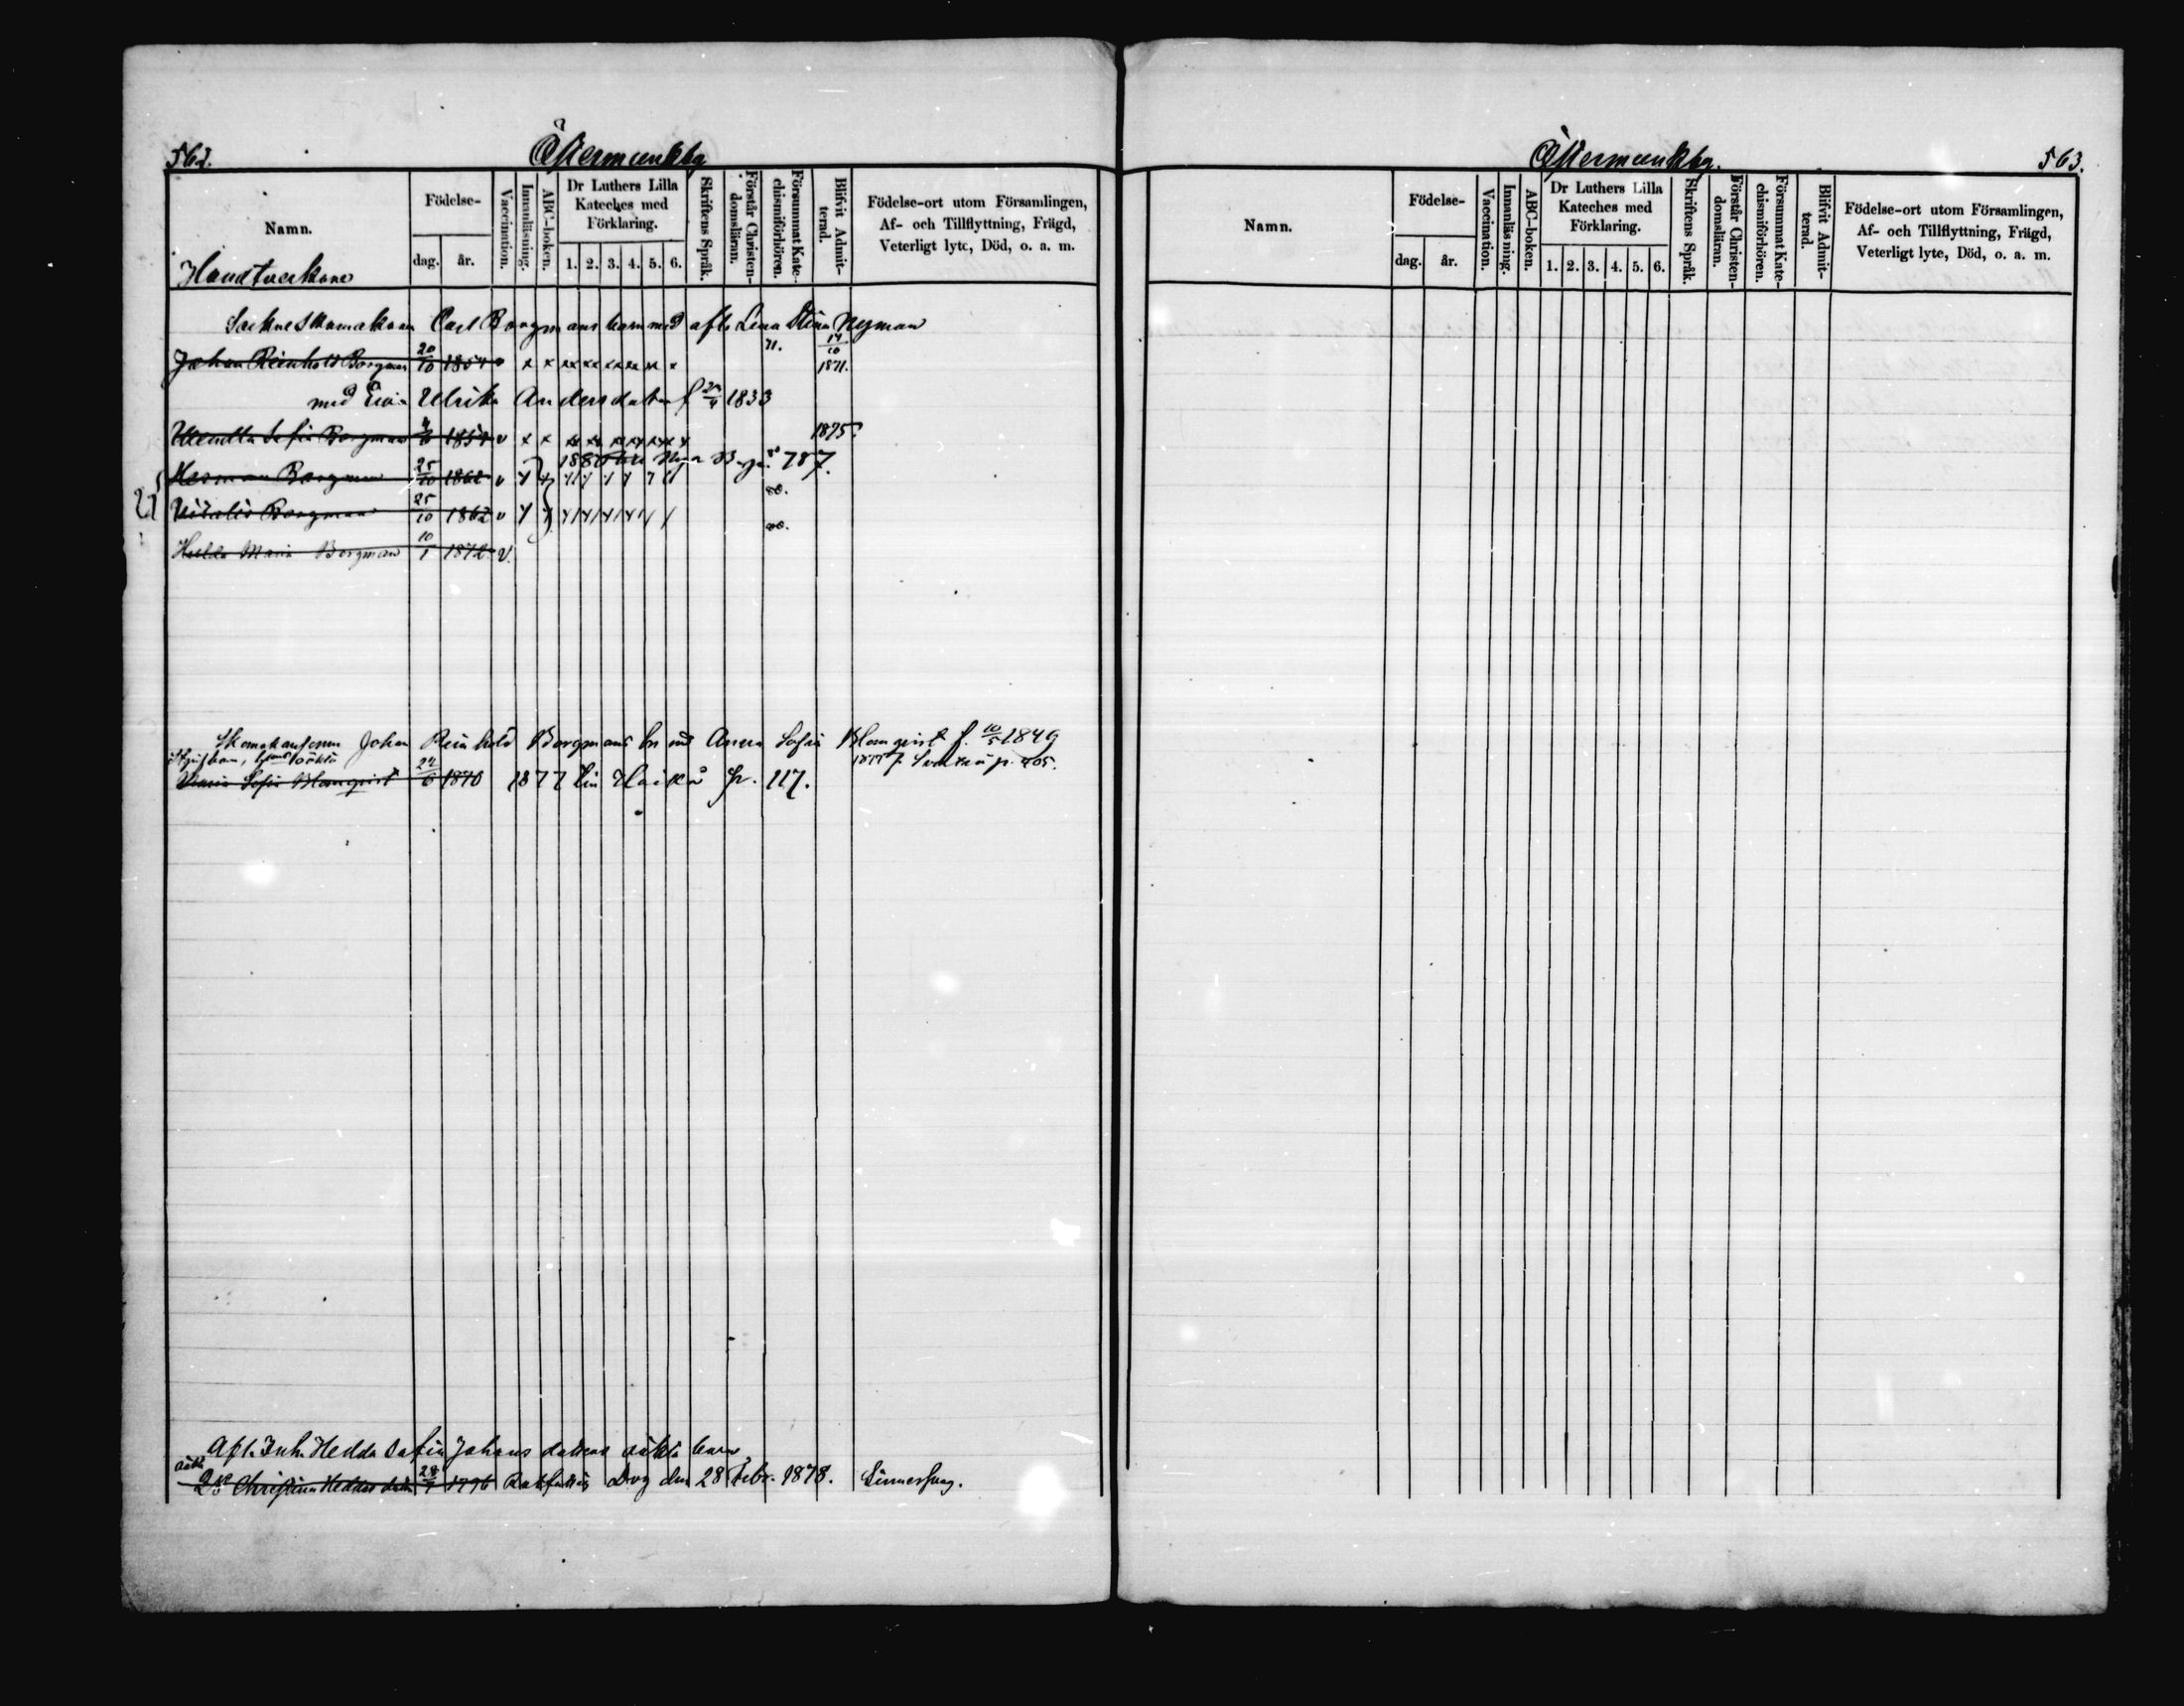 562.
Östermunkby
Namn.
Födelse-
dag.
år.
Vaccination.
Innanläsning.
ABC-boken.
Dr Luthers Lilla
Kateches med
Förklaring.
1. 2. 3. 4. 5. 6.
Skriftens Språk.
Förstår Christen-
domsläran.
Försummat Kate-
chismiförhören.
Blifvit Admit-
terad.
Födelse-ort utom Församlingen,
Af- och Tillflyttning, Frägd,
Veterligt lyte, Död, o. a. m.
Handtverkare
Sockneskomakaren Carl Borgmans barn med afl. Lena Stina Nyman
Johan Reinhold Borgman 20/10 1854 v x x xx xx xx xx xx x 71. 14/10 1871.
med Eva Ulrika Andersdotter f 1833
Sofia Borgman 1857 v x x xx xx xx xx xx x 1875.
Herman Borgman 25/10 1862 v 1880 787.
Borgman 25/10 1862 v 80.
Hulda Maria Borgman 10/1 1872 v. 80.
Johan Reinhold Borgmans Anna Sofia Blomqvist f. 10/5 1849
oäkta
Maria Sofia Blomqvist 24/6 1870 1877 Haiko 117.
Afl. Inh. Hedda Johansdotters oäkta barn
Christina Heddasdotter Dog den 28 Febr. 1878.
Östermunkby.
563.
Namn.
Födelse-
dag.
år.
Vaccination.
Innanläsning.
ABC-boken.
Dr Luthers Lilla
Kateches med
Förklaring.
1. 2. 3. 4. 5. 6.
Skriftens Språk.
Förstår Christen-
domsläran.
Försummat Kate-
chismiförhören.
Blifvit Admit-
terad.
Födelse-ort utom Församlingen,
Af- och Tillflyttning, Frägd,
Veterligt lyte, Död, o. a. m.